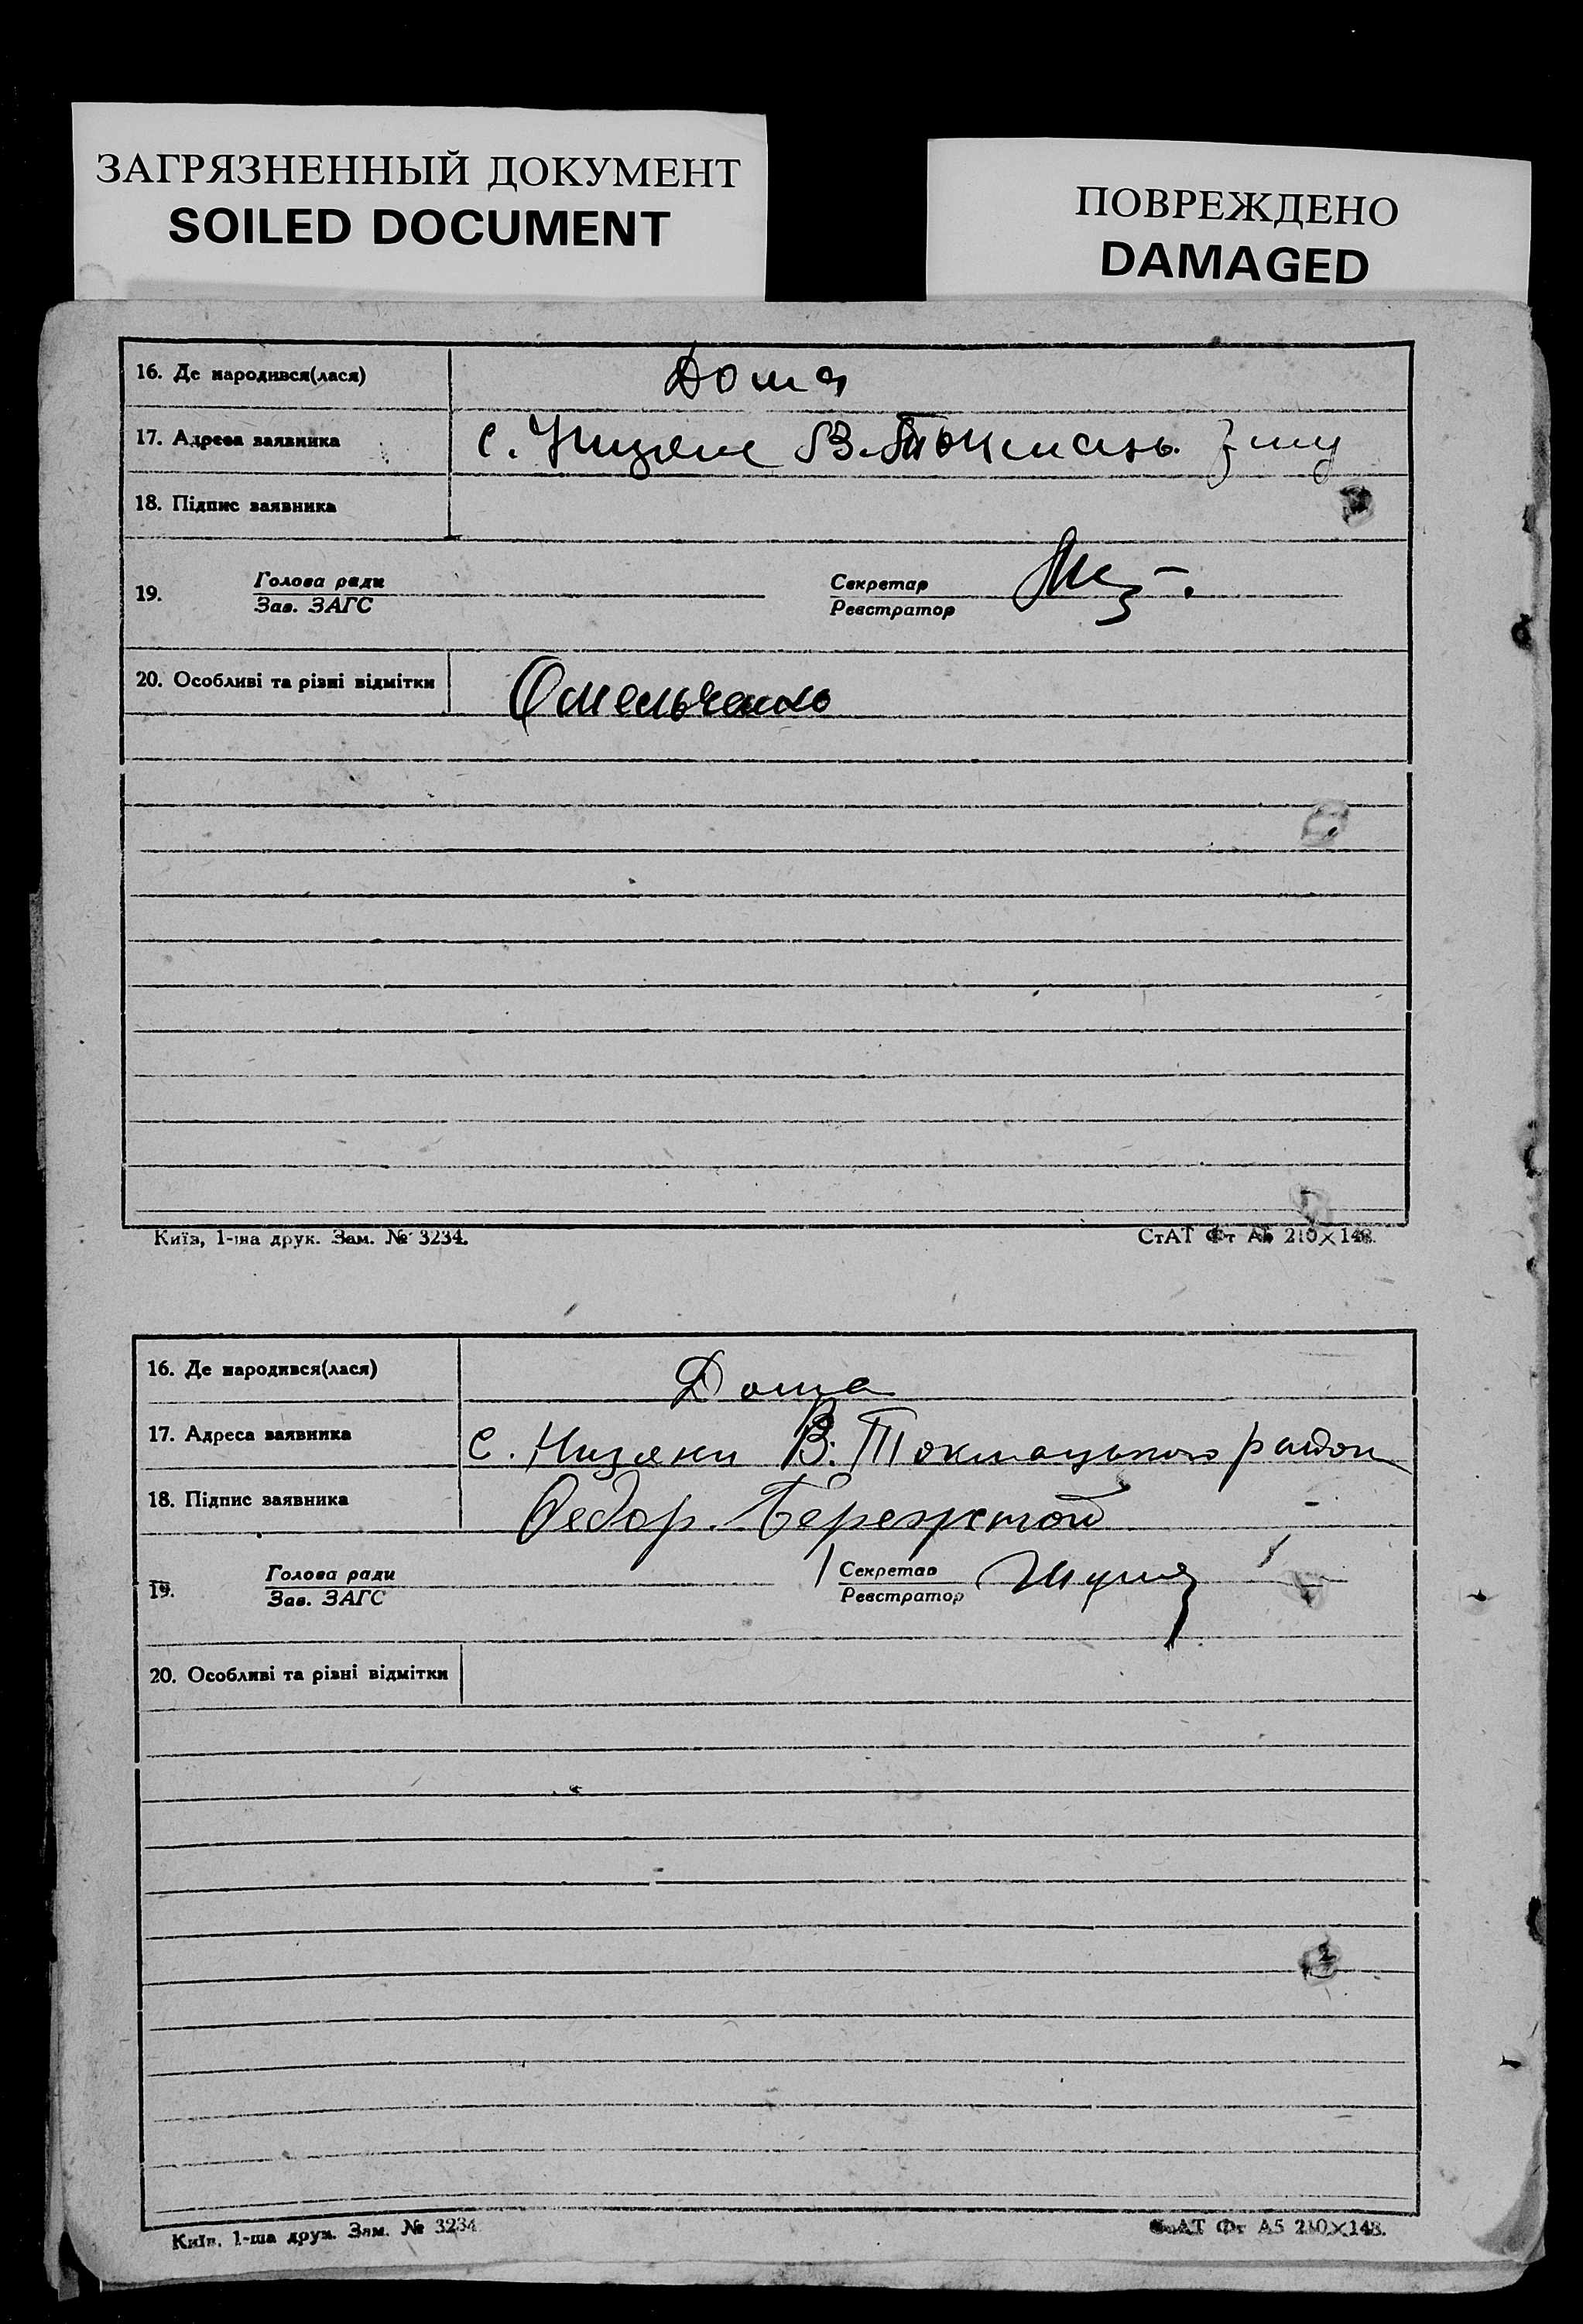 ЗАГРЯЗНЕННЫЙ ДОКУМЕНТ
SOILED DOCUMENT
ПОВРЕЖДЕНО
DAMAGED
16. Де народився(лася) Дома
17. Адреса заявника с. Низяне В.Токмаць.
18. Підпис заявника
19. Голова ради Секретар
Зав. ЗАГС Реєстратор
20. Особливі та різні відмітки Омельченко
Київ, 1-ша друк. Зам. № 3234. СтАТ Фт А5 210×148.
16. Де народився(лася) Дома
17. Адреса заявника с. Низяни В. Токмацького район
18. Підпис заявника Федор. Бережной
19. Голова ради Секретар
Зав. ЗАГС Реєстратор
20. Особливі та різні відмітки
Київ, 1-ша друк. Зам. № 3234 СтАТ Фт А5 210×148.